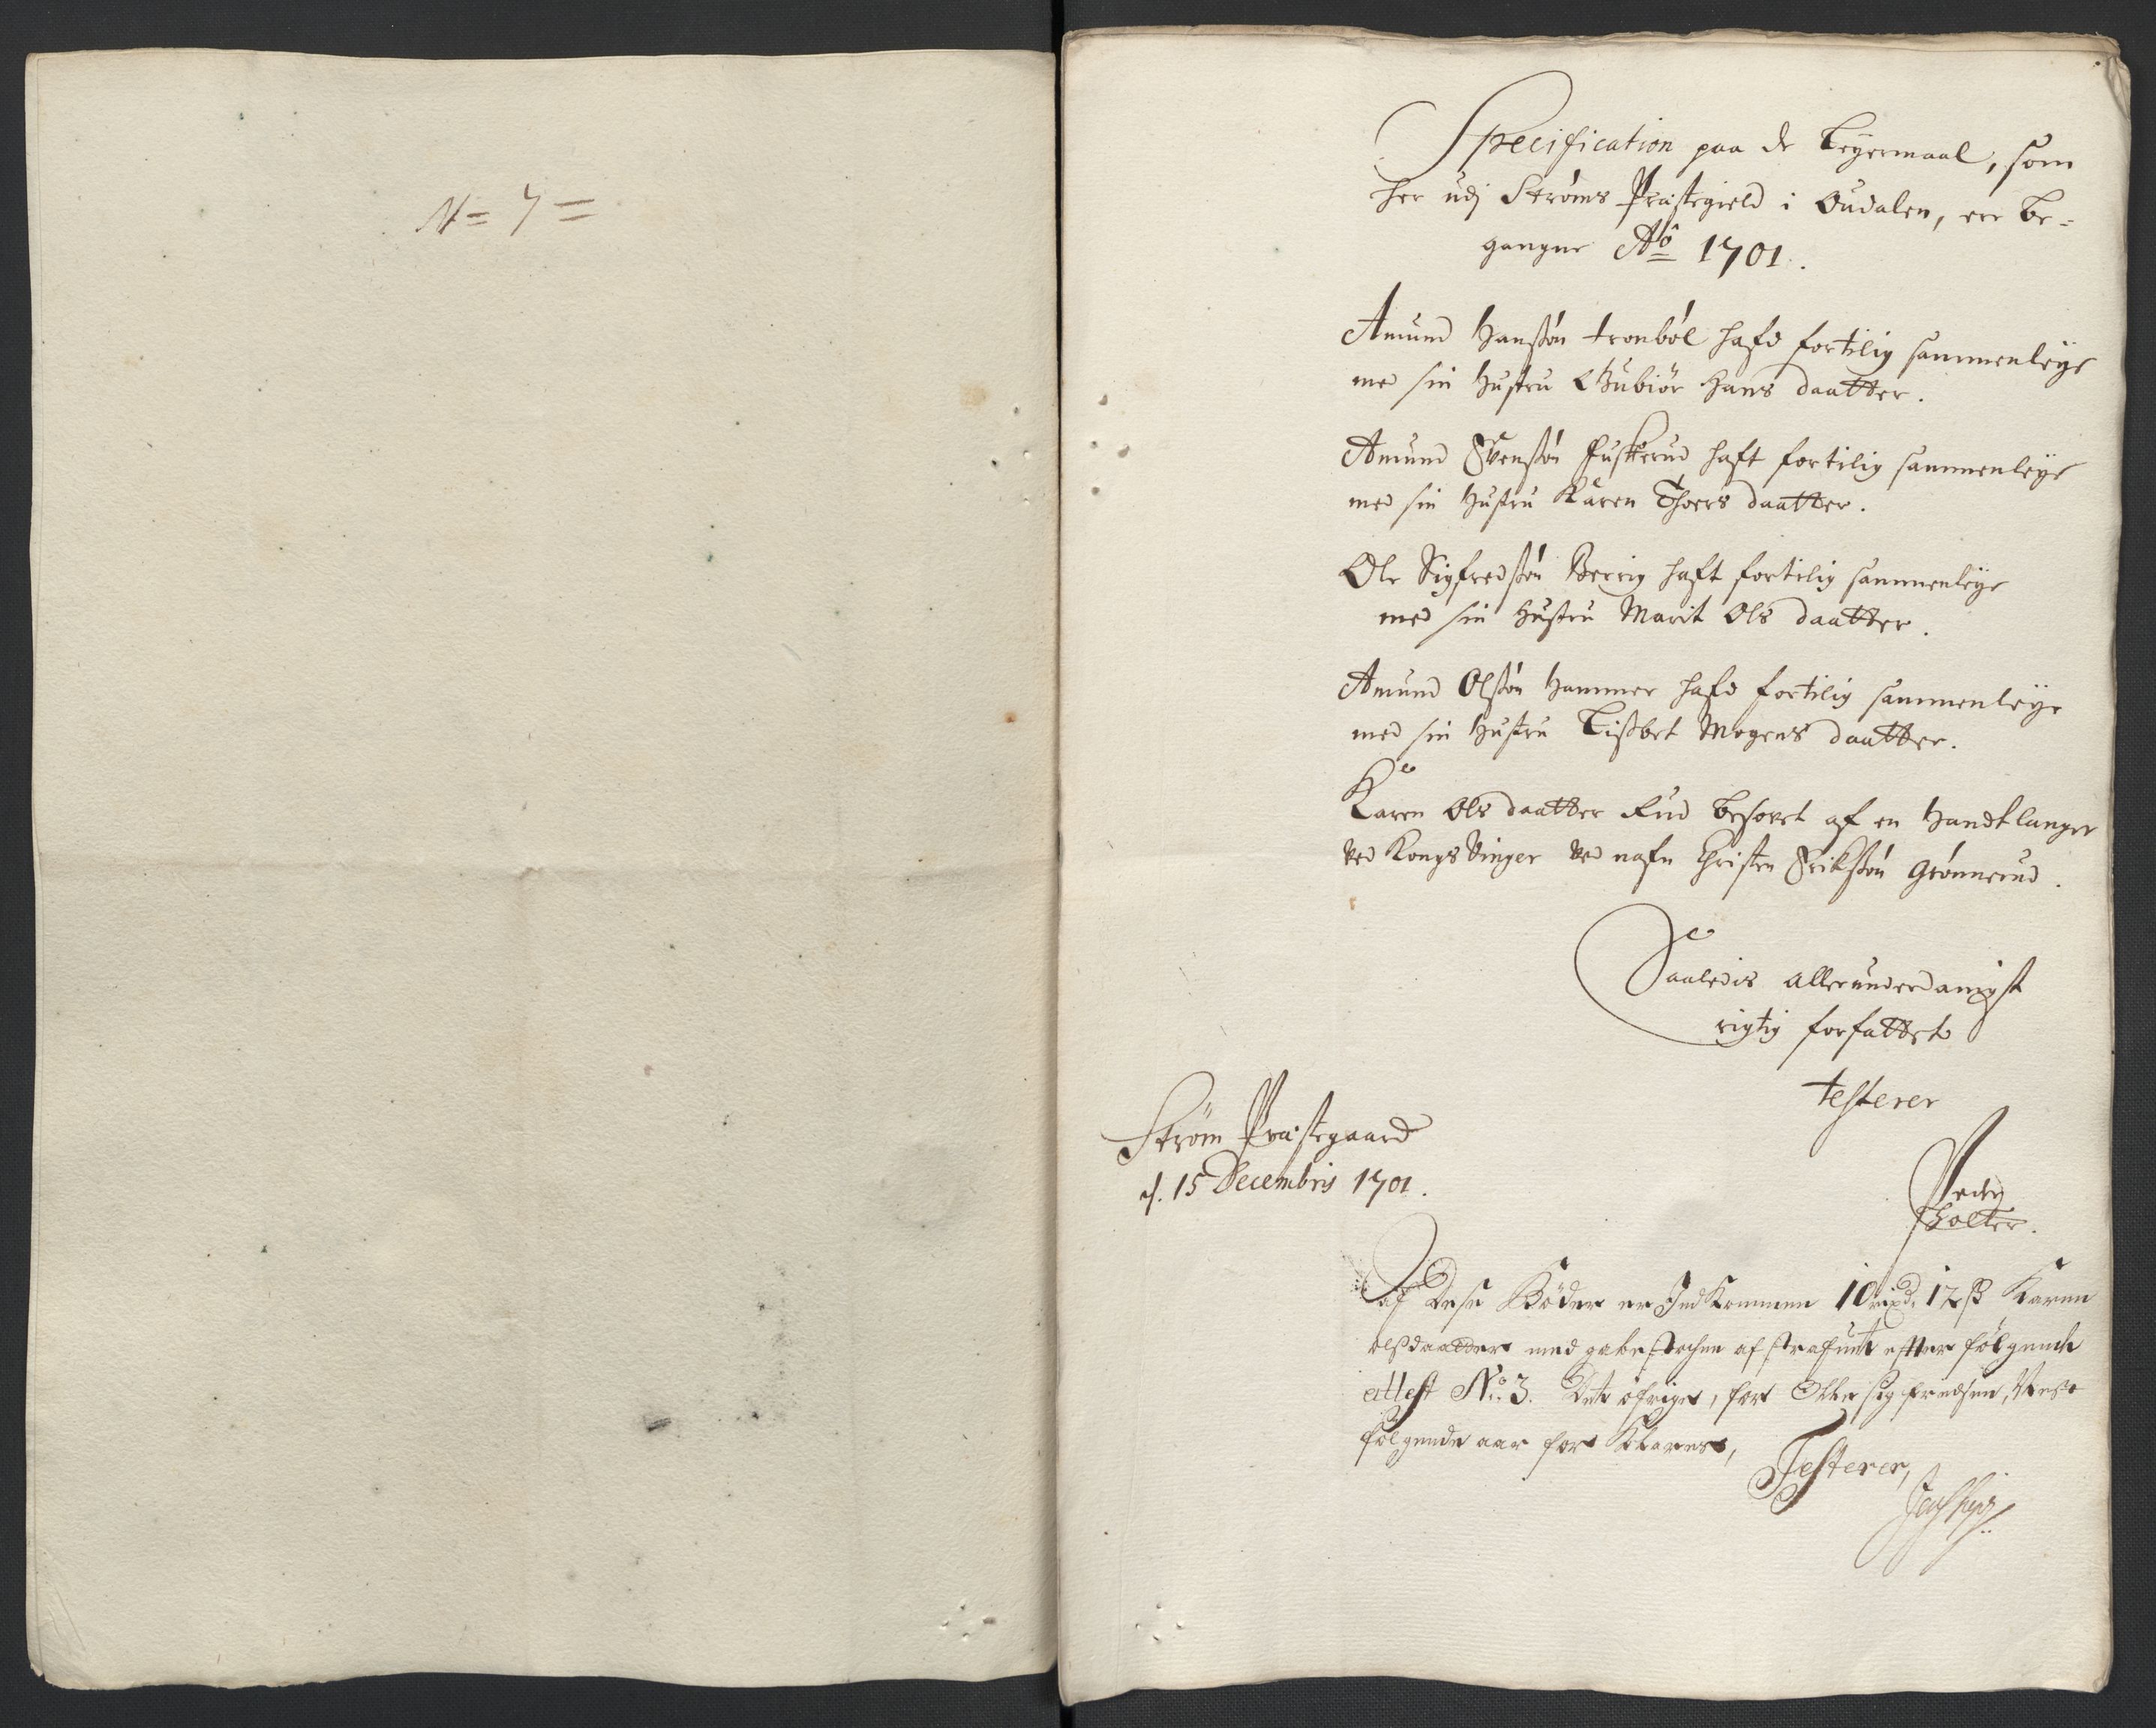 N= 7=
Specification paa de Leyermaal, som
her udj Strøms Præstegield i Oudalen, ere be-
gangne Aō 1701.
Amund Hanssøn tronbøl hafd fortilig sammenleye
med sin Hustru Gubiør Hans daatter.
Amund Svenssøn Fuskerud haft fortilig sammenleye
med sin Hustru Karen Thoers daatter.
Ole Sigfredssøn Berrig haft fortilig sammenleye
med sin Hustru Marit Ols daatter.
Amund Olssøn Hammer hafd fortilig sammenleye
med sin Hustru Lisbet Mogens daatter.
Karen Ols daatter Rud besovet af en Handtlanger
ved Kongs Vinger ved nafn Christen Erikssøn Grønnerud.
Saaledis allerunderdanigst
rigtig forfattet
testerer
Strøm Præstegaard
d. 15 Decembris 1701.
Peder
Holter.
Af Dese Bøder er Ind Kommen 10 rixd. 12 ß Karen
olsdaatter med gabestochen af straffuit effter følgende
attest No. 3. Dete øfrige, for Ole sigfredsen, Neste
følgende aar for Klares,
Testerer,